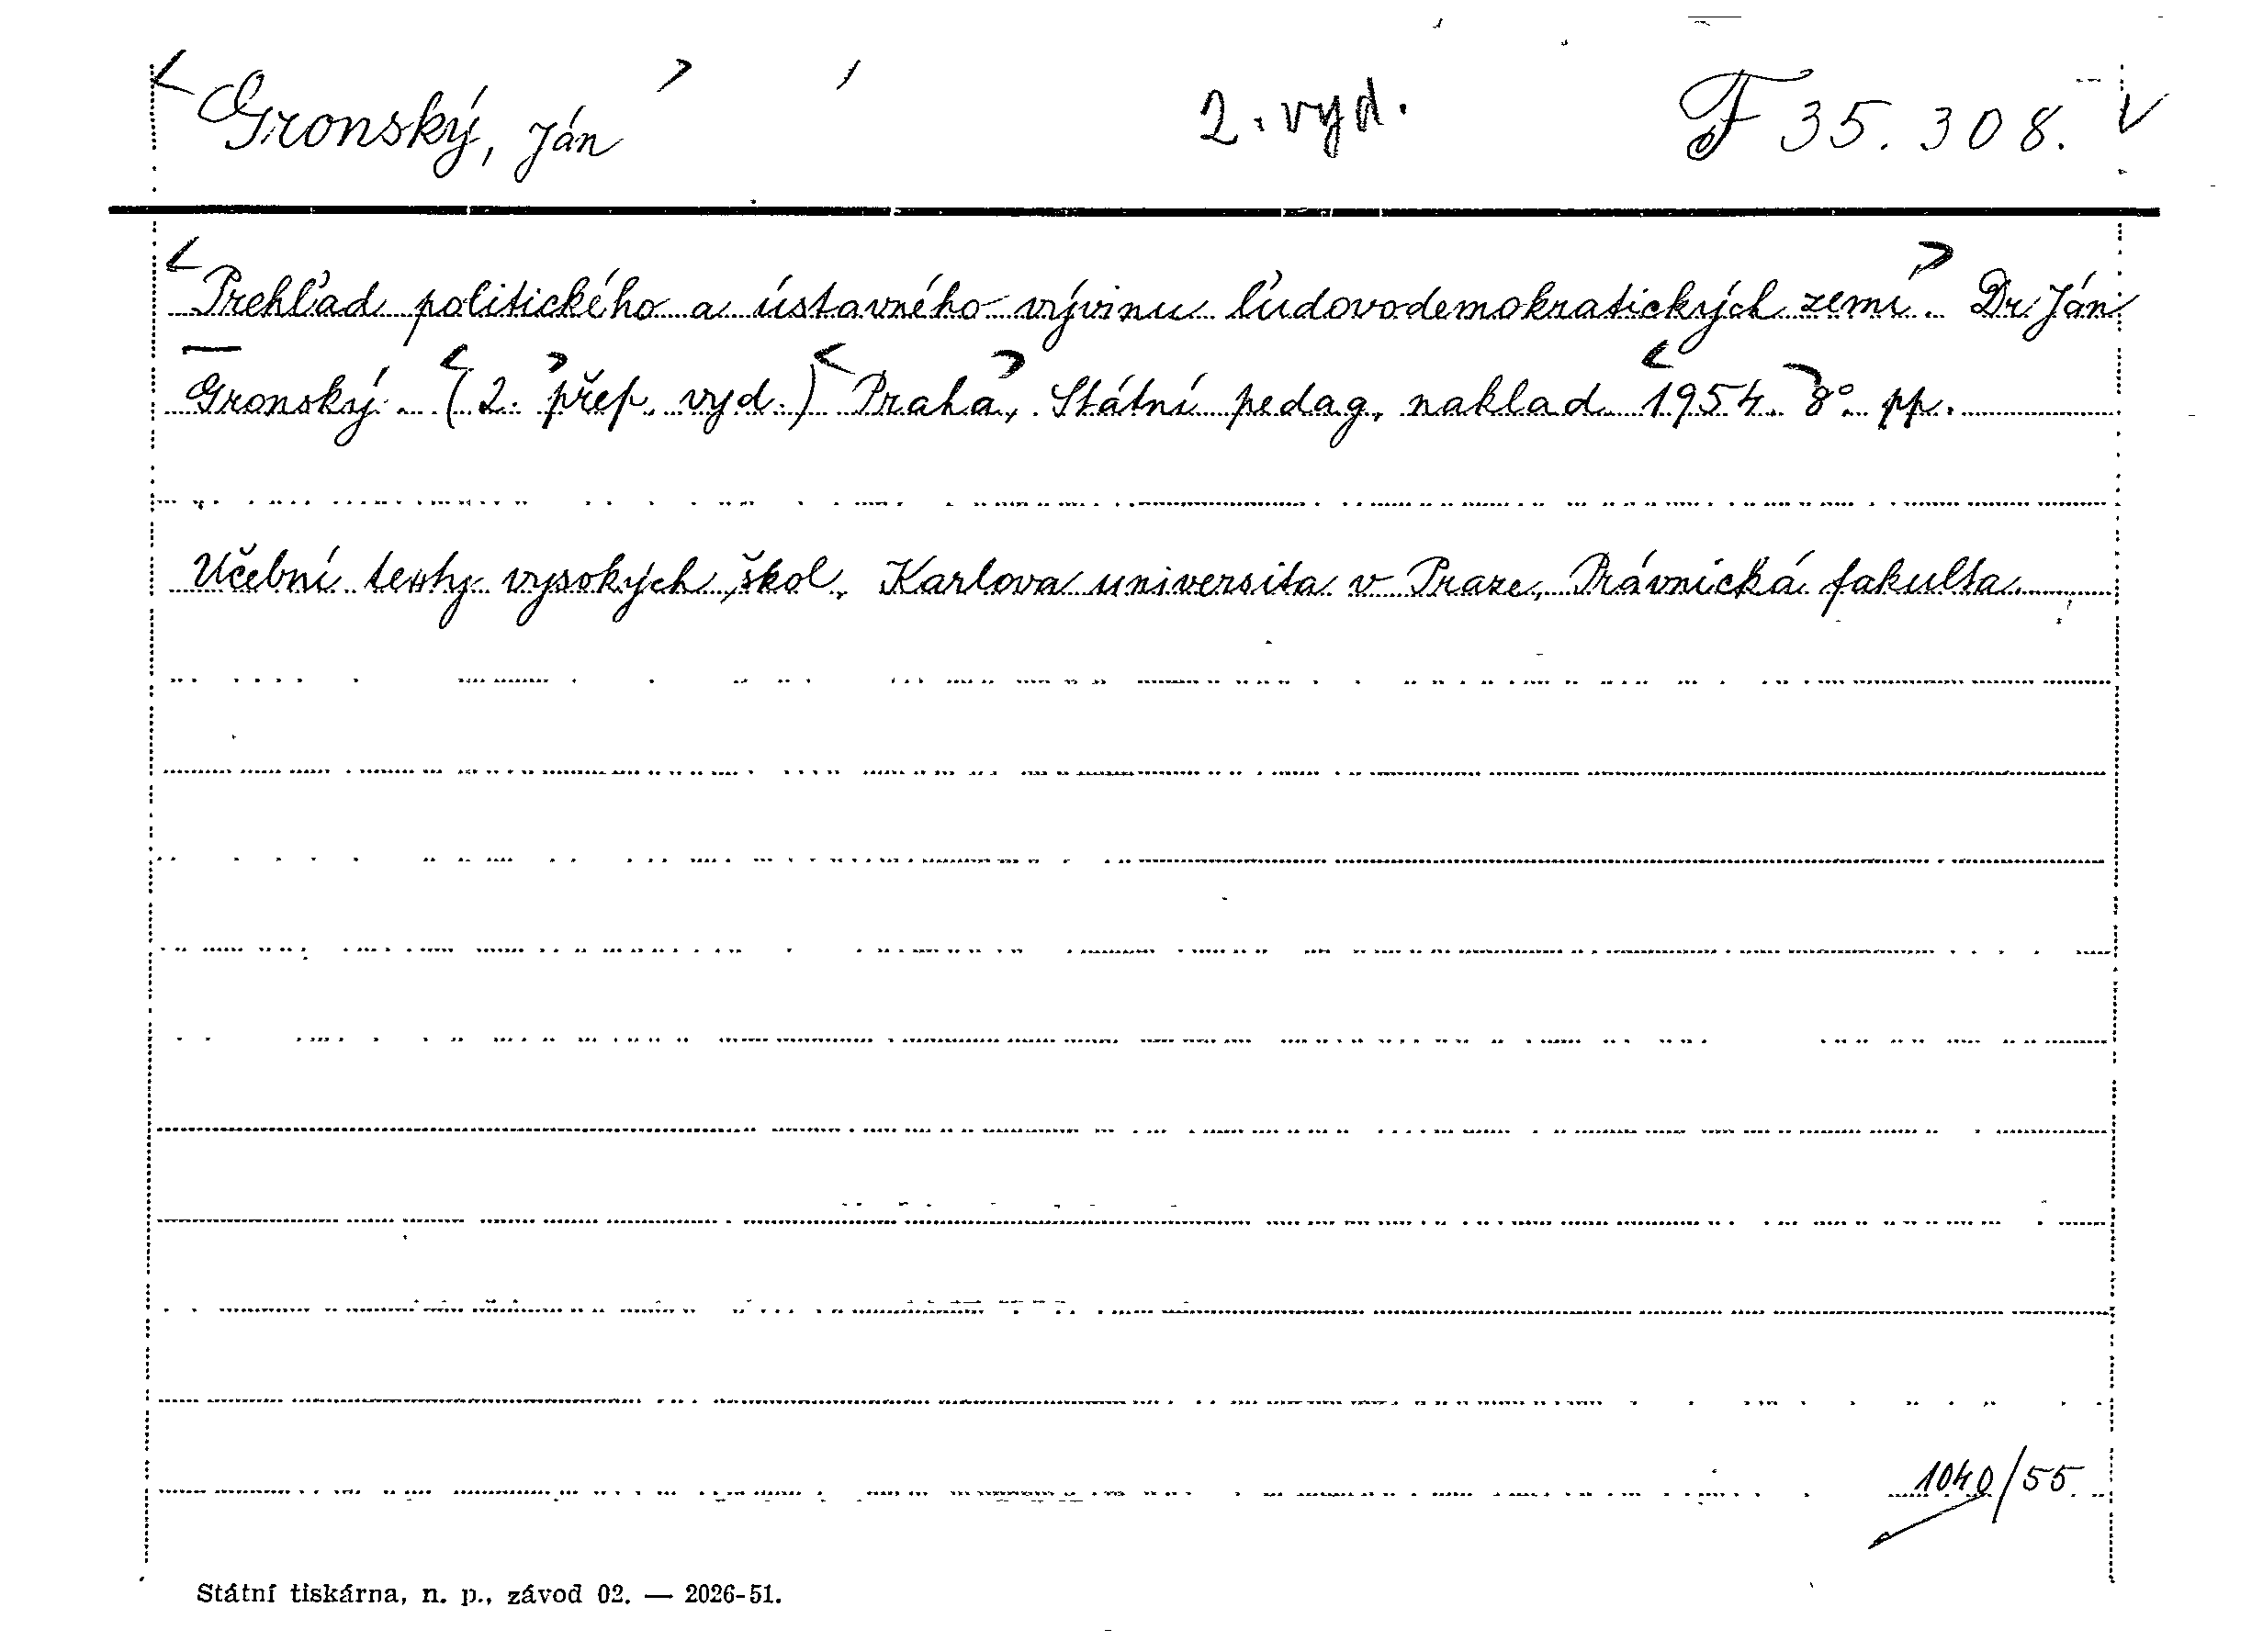 Gronský, Ján 2. vyd. F 35.308.
Prehľad politického a ústavného vývinu ľudovodemokratických zemí. Dr Ján
Gronský. (2. přep. vyd.) Praha, Státní pedag. naklad 1954. 8°. pp.
Učební texty vysokých škol. Karlova universita v Praze, Právnická fakulta.
1040/55.
Státní tiskárna, n. p., závod 02. — 2026-51.